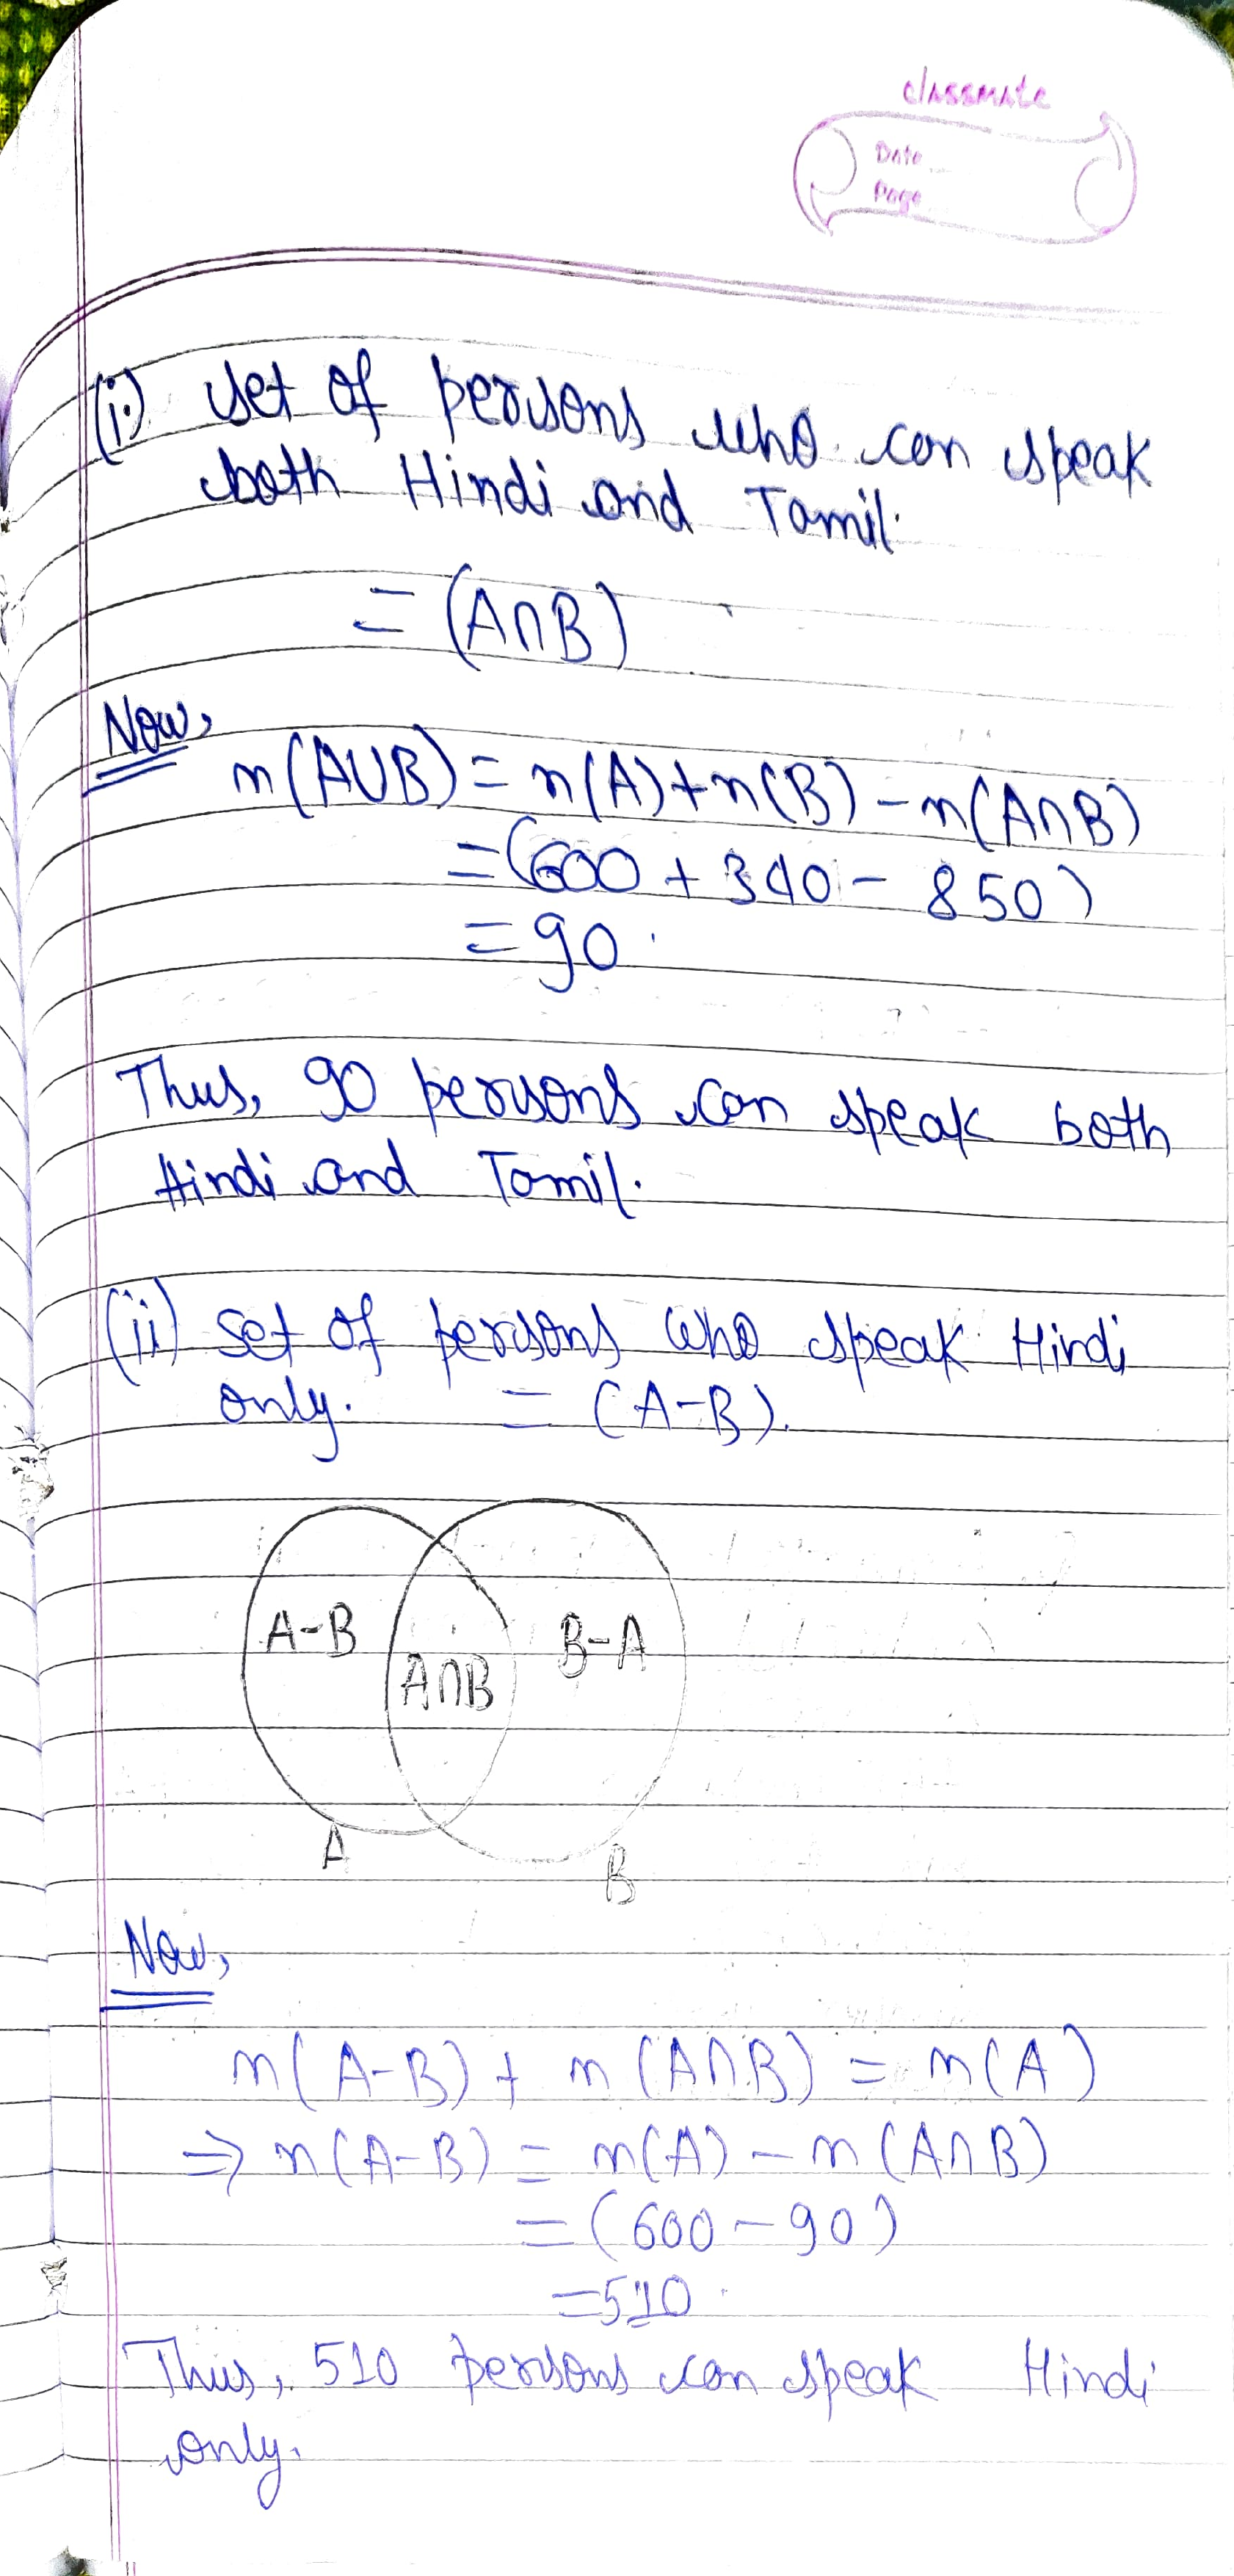 classmate
Date
Page
(i) set of persons who can speak
both Hindi and Tamil.
= (A∩B)
Now,
n(A∪B) = n(A)+n(B) - n(A∩B)
= (600 + 340 - 850)
= 90.
Thus, 90 persons can speak both
Hindi and Tamil.
(ii) set of persons who speak Hindi
only. = (A-B).
A-B
B-A
A∩B
A
B
Now,
n(A-B) + n(A∩B) = n(A)
⇒ n(A-B) = n(A) - n(A∩B)
= (600 - 90)
= 510
Thus, 510 persons can speak Hindi
only.